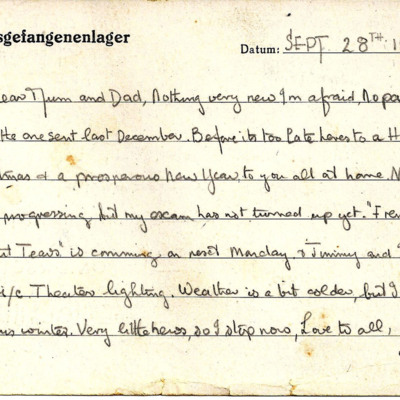 sgefangenenlager
Datum: SEPT 28TH 1
ear Mum and Dad, Nothing very new I'm afraid, No pa
the one sent last December. Before its too late heres to a H
tmas & a prosperous New Year to you all at home. N
progressing, but my exam has not turned up yet. "Fren
ut Tears" is comming on next Monday. & Jimmy and
i/c. Theater lighting. Weather is a bit colder, but I
winter. Very little news, so I stop now, Love to all,